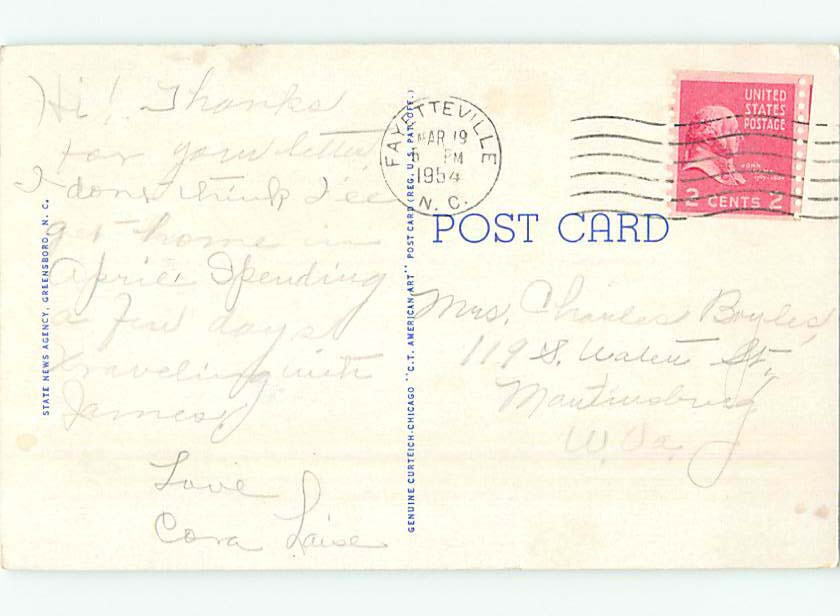 Hi! Thanks
for your letter,
I don't think I'll
get home in
April. Spending
a few days
traveling with
James.
Love
Cora Laise
STATE NEWS AGENCY, GREENSBORO, N. C.
GENUINE CURTEICH-CHICAGO "C.T. AMERICAN ART" POST CARD (REG. U.S. PAT. OFF.)
FAYETTEVILLE
MAR 19
PM
1954
N. C.
UNITED
STATES
POSTAGE
2 CENTS 2
POST CARD
Mrs. Charles Boyles,
119 S. Water St.,
Martinsburg
W. Va.